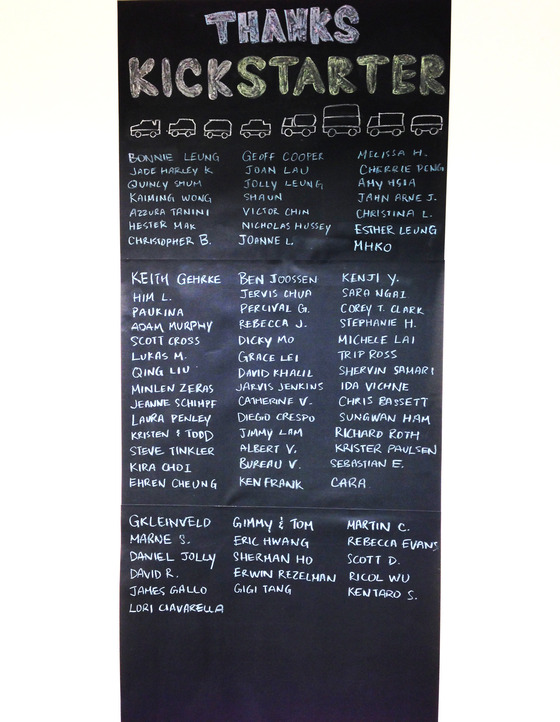 THANKS
KICKSTARTER
BONNIE LEUNG GEOFF COOPER MELISSA H.
JADE HARLEY K JOAN LAU CHERRIE PENG
QUINCY SHUM JOLLY LEUNG AMY HSIA
KAIMING WONG SHAUN JAHN ARNE J.
AZZURA TANINI VICTOR CHIN CHRISTINA L.
HESTER MAK NICHOLAS HUSSEY ESTHER LEUNG
CHRISTOPHER B. JOANNE L. MHKO
KEITH GEHRKE BEN JOOSSEN KENJI Y.
HIM L. JERVIS CHUA SARA NGAI
PAUKINA PERCIVAL G. COREY T. CLARK
ADAM MURPHY REBECCA J. STEPHANIE H.
SCOTT CROSS DICKY MO MICHELE LAI
LUKAS M. GRACE LEI TRIP ROSS
QING LIU DAVID KHALIL SHERVIN SAMARI
MINLEN ZERAS JARVIS JENKINS IDA VICHNE
JEANNE SCHIMPF CATHERINE V. CHRIS BASSETT
LAURA PENLEY DIEGO CRESPO SUNGWAN HAM
KRISTEN & TODD JIMMY LAM RICHARD ROTH
STEVE TINKLER ALBERT V. KRISTER PAULSEN
KIRA CHOI BUREAU V. SEBASTIAN E.
EHREN CHEUNG KEN FRANK CARA
GKLEINVELD GIMMY & TOM MARTIN C.
MARNE S. ERIC HWANG REBECCA EVANS
DANIEL JOLLY SHERMAN HO SCOTT D.
DAVID R. ERWIN REZELMAN RICOL WU
JAMES GALLO GIGI TANG KENTARO S.
LORI CIAVARELLA